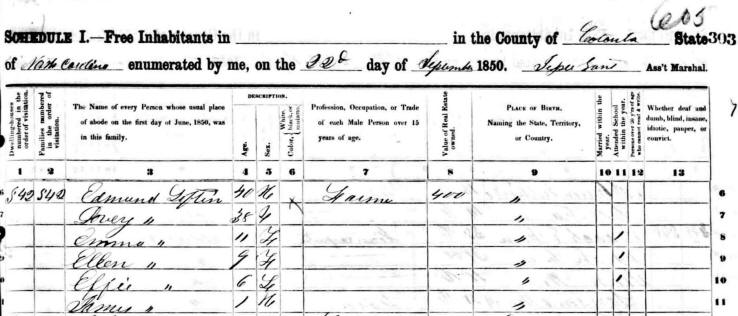 605
SCHEDULE I.—Free Inhabitants in in the County of State 303
of North Carolina enumerated by me, on the 22d day of September 1850. Ass't Marshal.
DESCRIPTION.
Dwelling-houses numbered in the order of visitation.
Families numbered in the order of visitation.
The Name of every Person whose usual place of abode on the first day of June, 1850, was in this family.
Age.
Sex.
Color, White, black, or mulatto.
Profession, Occupation, or Trade of each Male Person over 15 years of age.
Value of Real Estate owned.
PLACE OF BIRTH. Naming the State, Territory, or Country.
Married within the year.
Attended School within the year.
Persons over 20 y'rs of age who cannot read & write.
Whether deaf and dumb, blind, insane, idiotic, pauper, or convict.
1 2 3 4 5 6 7 8 9 10 11 12 13
6 542 542 Edmund 40 M Farmer 400 " 6
7 " 38 F " 7
8 Emma " 11 F " 1 8
9 Ellen " 9 F " 1 9
Effie " 6 F " 1 10
James " 1 M " 11